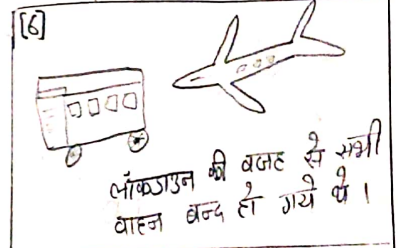 [6]
लॉकडाउन की वजह से सभी
वाहन बन्द हो गये थे ।